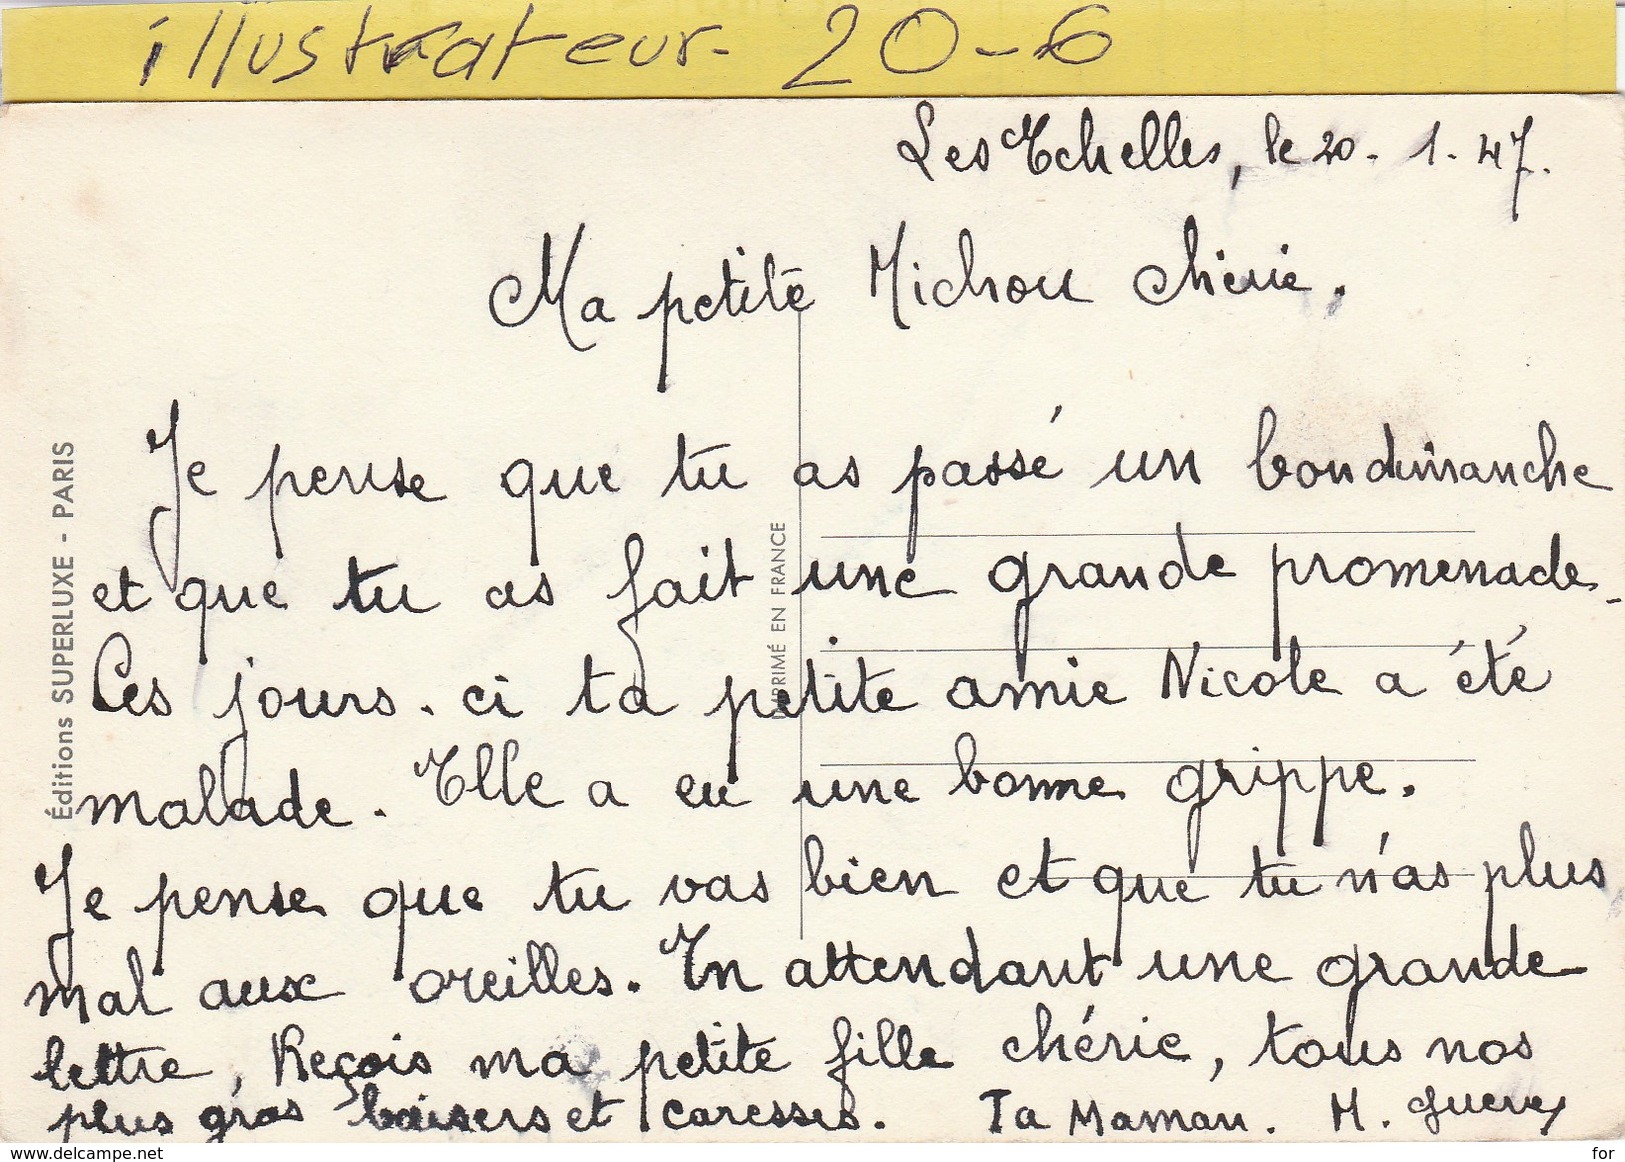 illustrateur- 20-6
Les Echelles, le 20. 1. 47.
Ma petite Michou chérie.
Je pense que tu as passé un bon dimanche
et que tu as fait une grande promenade.
Ces jours-ci ta petite amie Nicole a été
malade. Elle a eu une bonne grippe.
Je pense que tu vas bien et que tu n'as plus
mal aux oreilles. En attendant une grande
lettre, Reçois ma petite fille chérie, tous nos
plus gros baisers et caresses. Ta Maman. M.
Éditions SUPERLUXE - PARIS
IMPRIMÉ EN FRANCE
www.delcampe.net
for